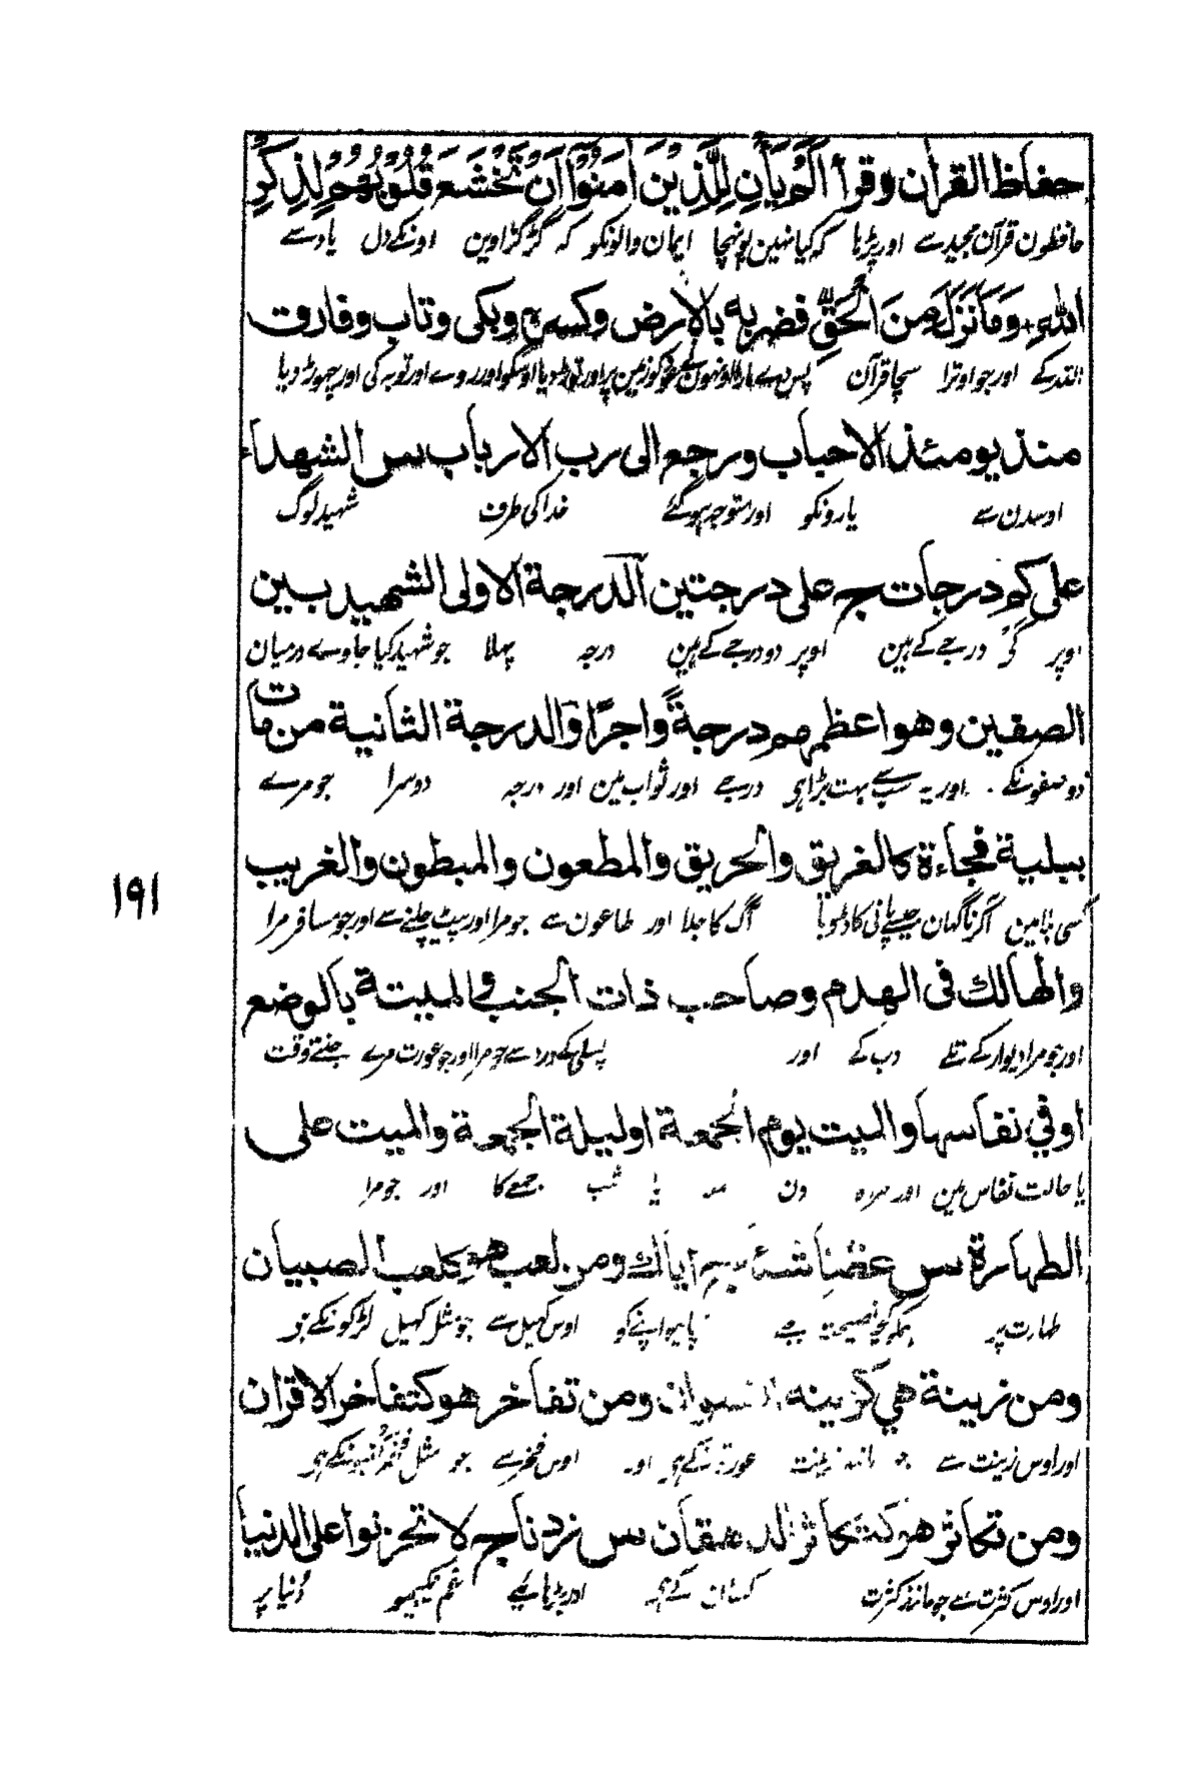 حفاظ القران وقرأ اَلَمْ يَأْنِ لِلَّذِيْنَ اٰمَنُوْٓا اَنْ تَخْشَعَ قُلُوْبُهُمْ لِذِكْرِ
حافظون قرآن مجید سے اور پڑہا کہ کیا نہین پہونچا ایمان والونکو کہ گڑگڑاوین اونکے دل یاد سے
اللّٰهِ وَمَا نَزَلَ مِنَ الْحَقِّ فضربه بالارض وكسره وبكى وتاب وفارق
اللہ کے اور جو اوترا سچا قرآن پس دے مارا اونہوں نے کو زمین پر اور توڑ دیا اوسکو اور روے اور توبہ کی اور چھوڑ دیا
منذ يومئذ الاحباب ورجع الى رب الارباب س الشهداء
اوسدن سے یارونکو اور متوجہ ہوگئے خدا کی طرف شہید لوگ
على كم درجات ج على درجتين الدرجة الاولى الشهيد بين
اوپر کَے درجے کے ہین اوپر دو درجے کے ہین درجہ پہلا جو شہید کیا جاوے درمیان
الصفين وهو اعظمهم درجةً واجرًا والدرجة الثانية من مات
دو صفونکے اور یہ سب سے بہت بڑا ہی درجے اور ثواب مین اور درجہ دوسرا جو مرے
ببلية فجاءة كالغريق والحريق والمطعون والمبطون والغريب
کسی بلا مین اگر ناگہان جیسے پانی کا ڈوبا آگ کا جلا اور طاعون سے جو مرا اور پیٹ چلنے سے اور جو مسافر مرا
والهالك فى الهدم وصاحب ذات الجنب والميتة بالوضع
اور جو مرا دیوار کے تلے دب کے اور پسلی کے درد سے جو مرا اور جو عورت مرے جنتے وقت
او في نفاسها والميت يوم الجمعة او ليلة الجمعة والميت على
یا حالت نفاس مین اور مردہ دن یا شب جمعے کا اور جو مرا
الطهارة س عظنا شئا ج اياك ومن لعب هو كلعب الصبيان
طہارت پر ہمکو کچھ نصیحت بچاؤ اپنے کو اوس کہیل سے جو مثل کہیل لڑکونکے ہو
ومن زينة هي كزينة النسوان ومن تفاخر هو كتفاخر الاقران
اور اوس زینت سے جو مانند زینت عورتونکے ہی اور اوس فخر سے جو مثل فخر
ومن تكاثر هو كتكاثر الدهقان س زدنا ج لا تحزنوا على الدنيا
اور اوس کثرت سے جو مانند کثرت کسان کے ہی اور بڑہائیے غم نکیجیو دنیا پر
١٩١